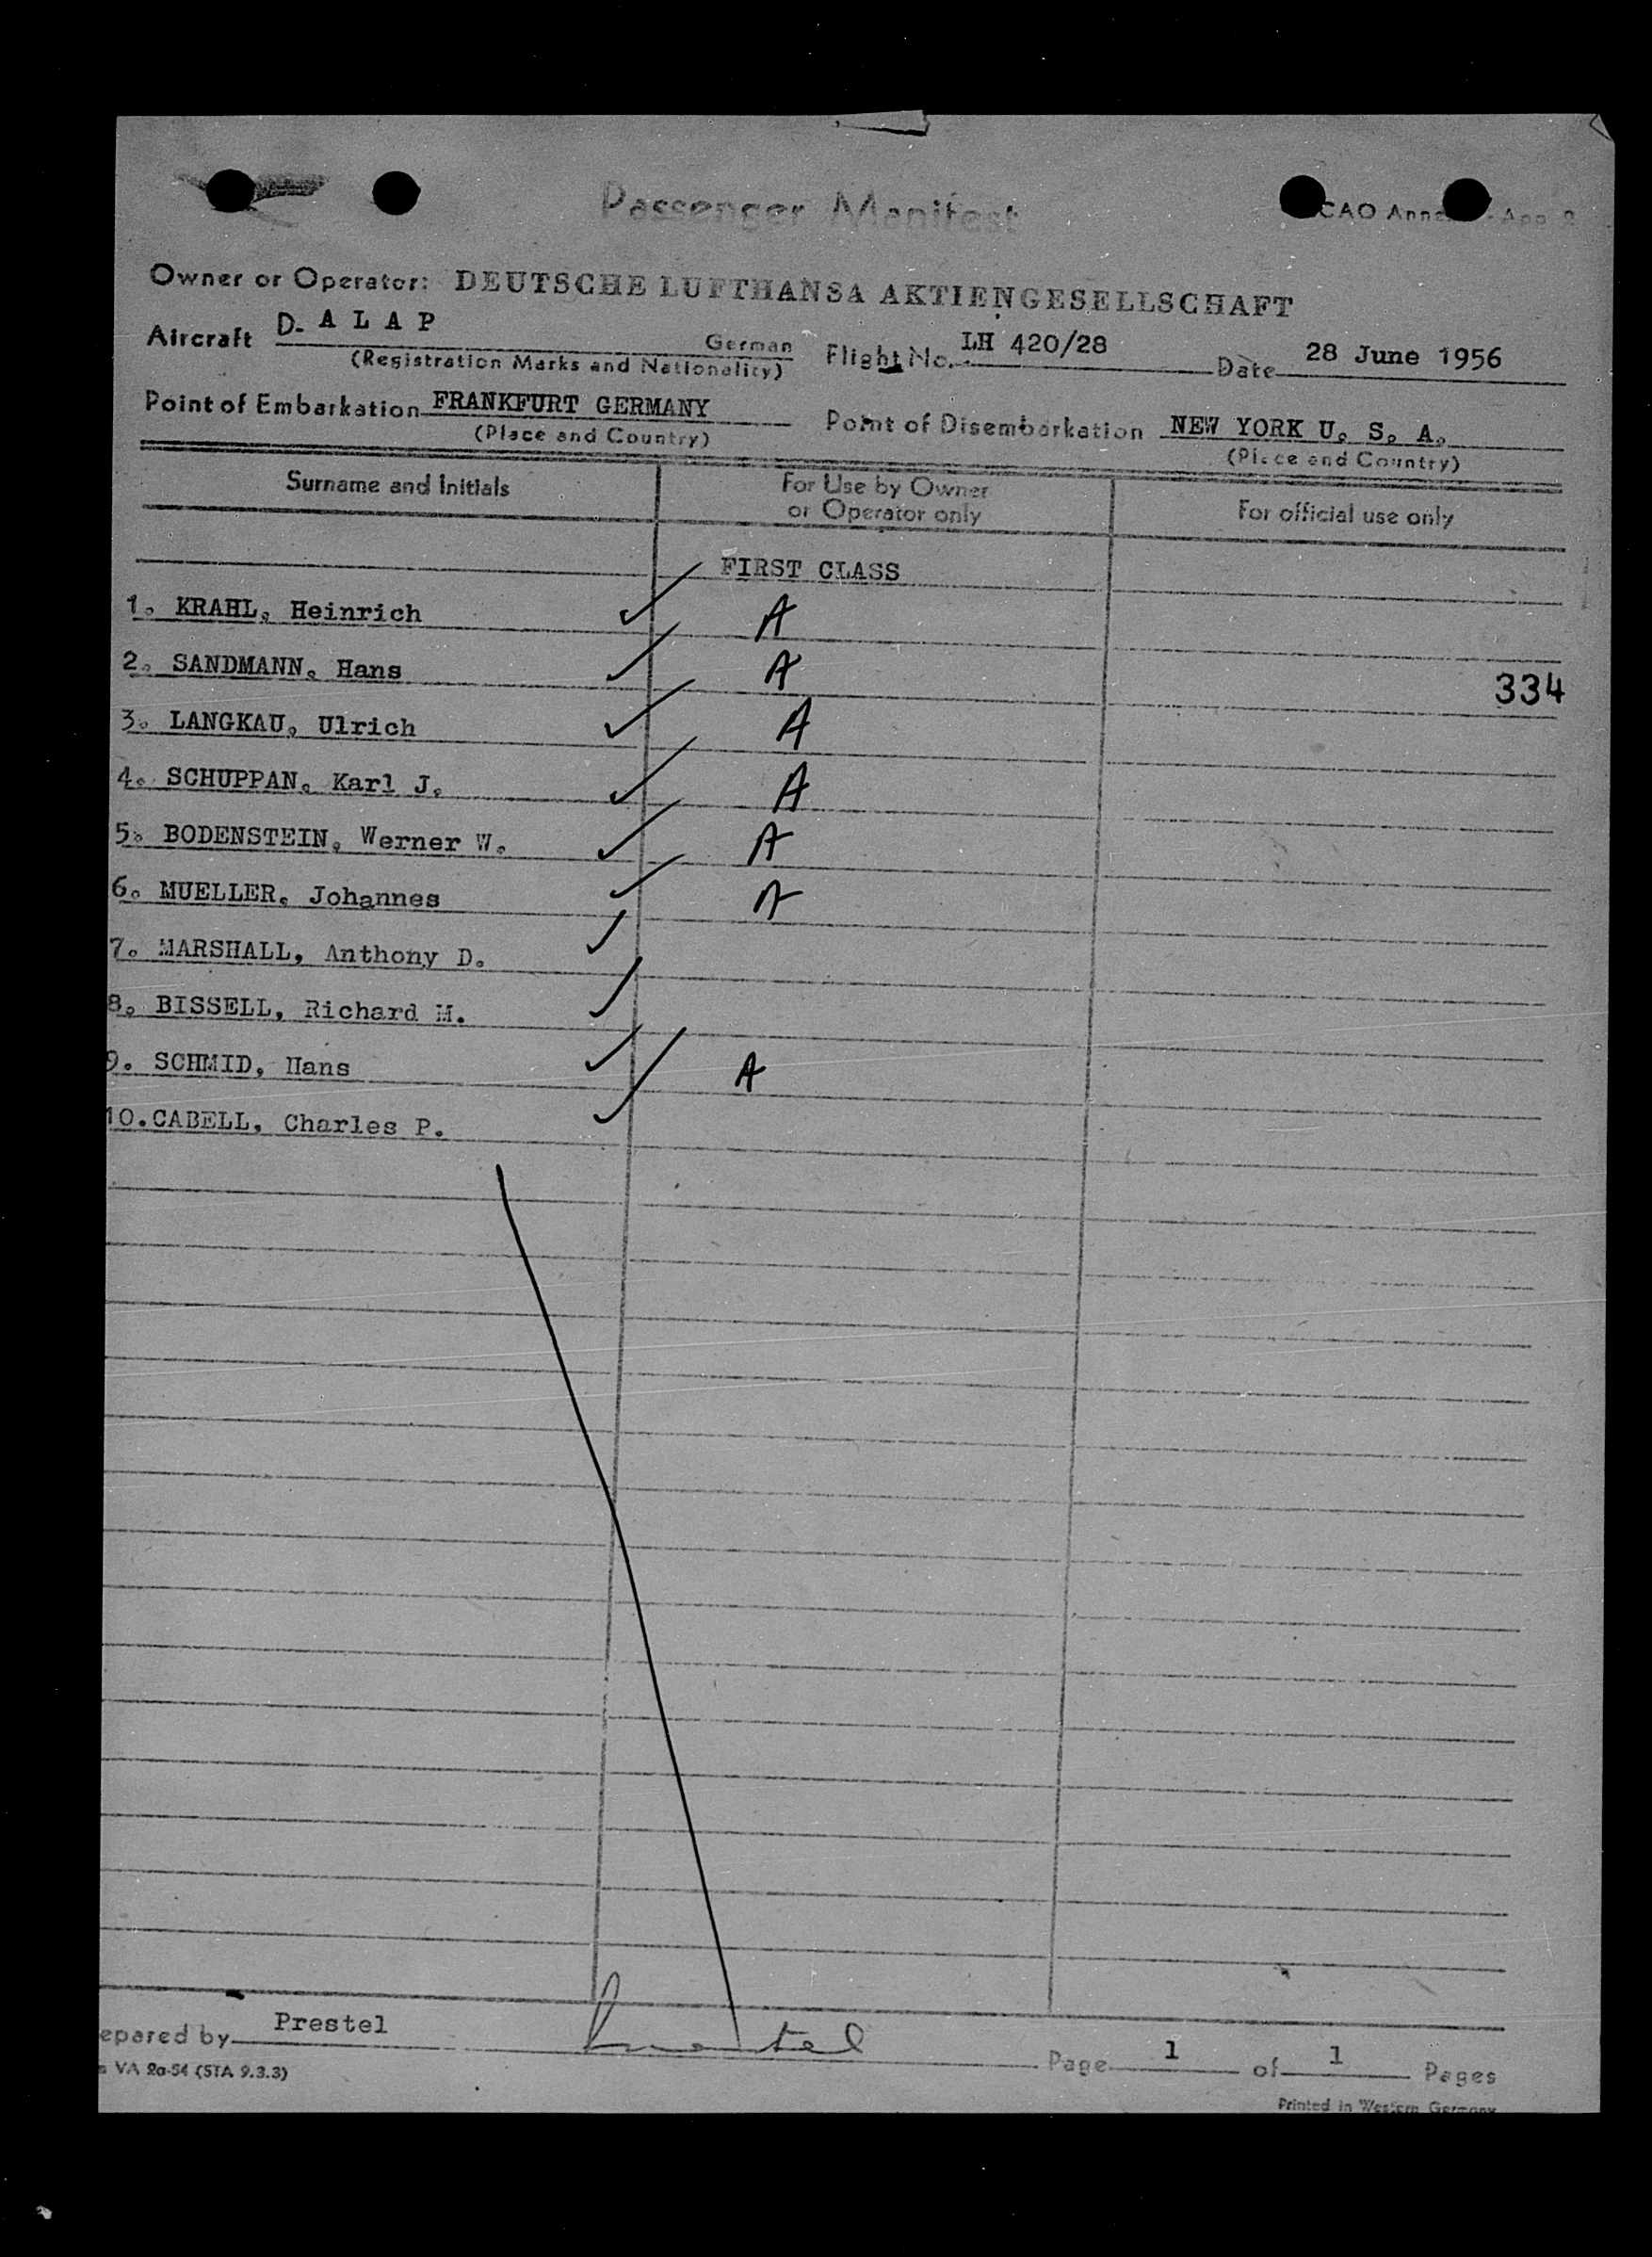 Passenger Manifest
CAO Anne - App 2
Owner or Operator: DEUTSCHE LUFTHANSA AKTIENGESELLSCHAFT
Aircraft D- A L A P German Flight No. LH 420/28 Date 28 June 1956
(Registration Marks and Nationality)
Point of Embarkation FRANKFURT GERMANY Point of Disembarkation NEW YORK U. S. A.
(Place and Country) (Place and Country)
Surname and Initials For Use by Owner or Operator only For official use only
FIRST CLASS
1. KRAHL, Heinrich ✓ A
2. SANDMANN, Hans ✓ A
334
3. LANGKAU, Ulrich ✓ A
4. SCHUPPAN, Karl J. ✓ A
5. BODENSTEIN, Werner W. ✓ A
6. MUELLER, Johannes ✓ A
7. MARSHALL, Anthony D. ✓
8. BISSELL, Richard M. ✓
9. SCHMID, Hans ✓ A
10. CABELL, Charles P. ✓
epared by Prestel Prestel Page 1 of 1 Pages
VA 2a-54 (STA 9.3.3)
Printed in Western Germany